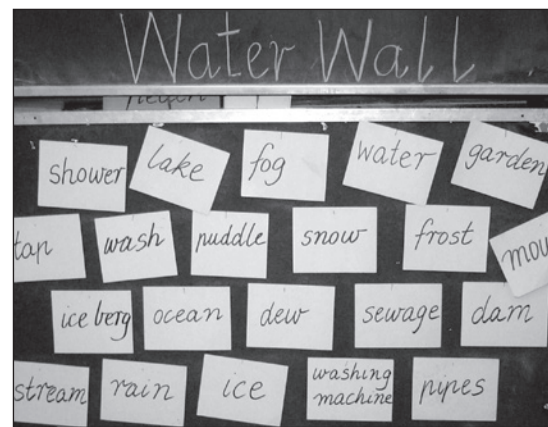 Water Wall
shower lake fog water garden
tap wash puddle snow frost
ice berg ocean dew sewage dam
stream rain ice washing
machine pipes